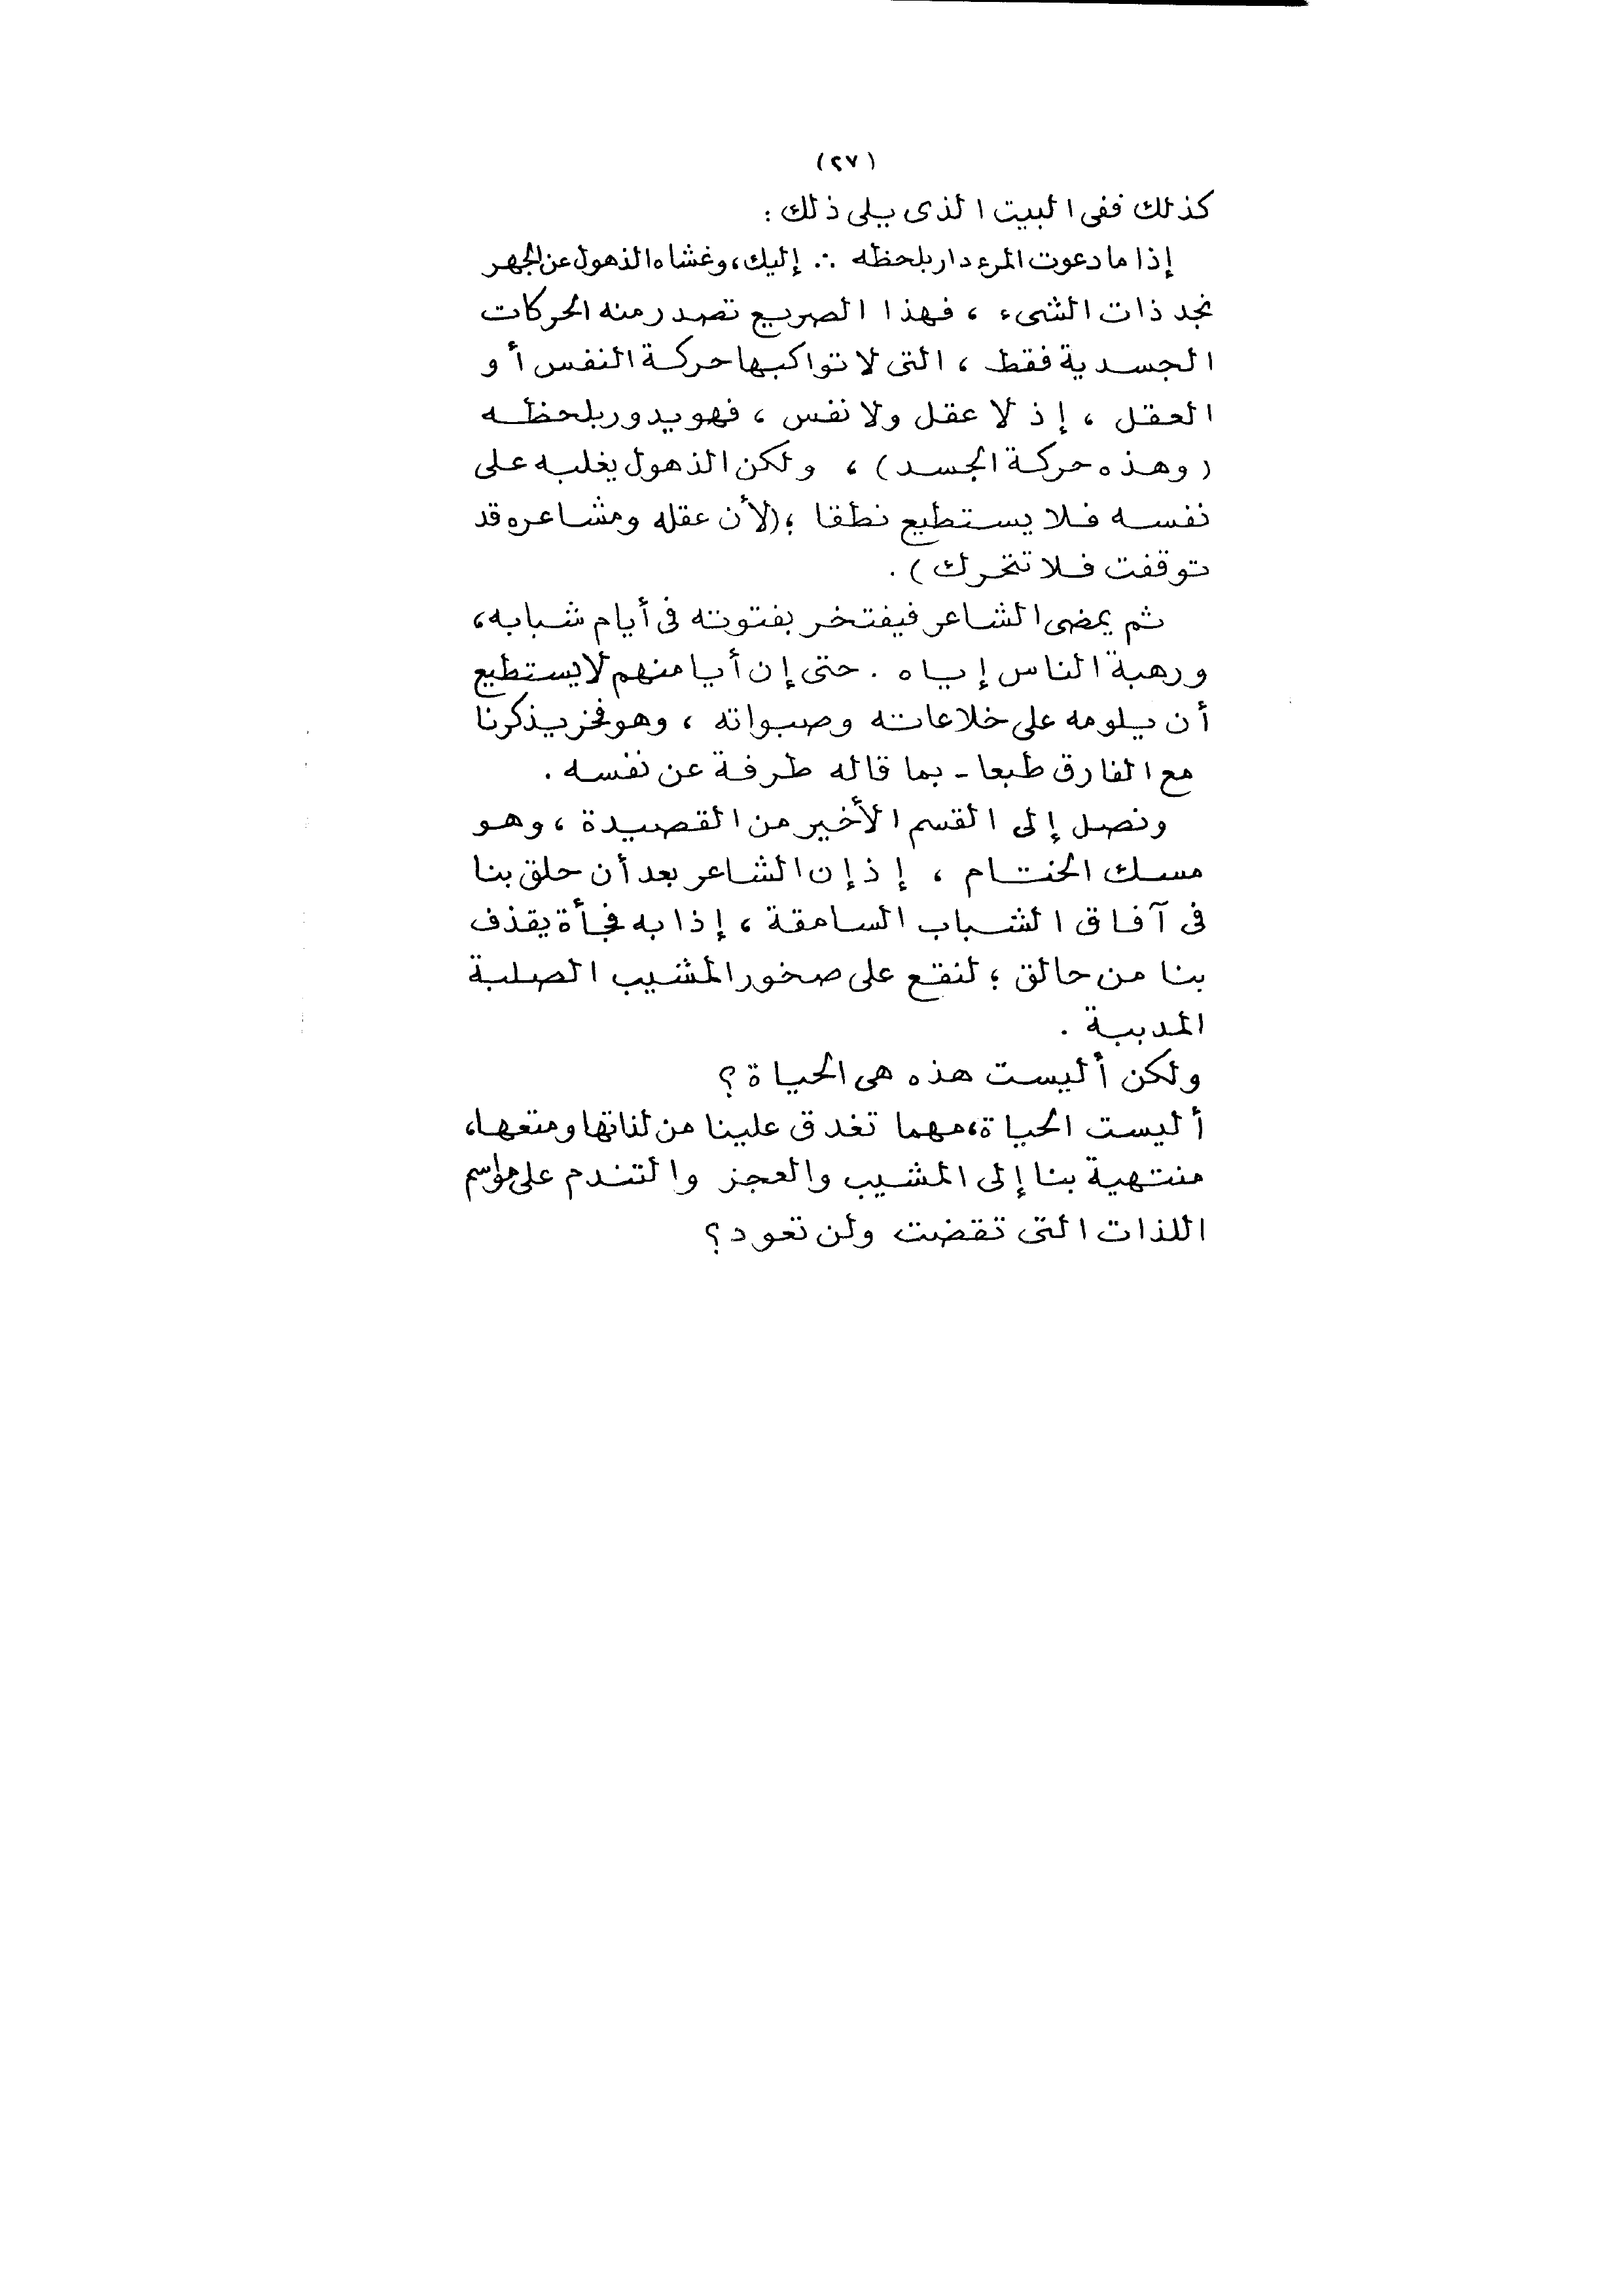 (٢٧)
كذلك ففى البيت الذى يلى ذلك :
إذا ما دعوت المرء دار بلحظه ∴ إليك، وغشاه الذهول عن الجهر
نجد ذات الشىء ، فهذا الصريع تصدر منه الحركات
الجسدية فقط ، التى لا تواكبها حركة النفس أو
العقل ، إذ لا عقل ولا نفس ، فهو يدور بلحظه
(وهذه حركة الجسد) ، ولكن الذهول يغلبه على
نفسه فلا يستطيع نطقا ؛ (لأن عقله ومشاعره قد
توقفت فلا تتحرك) .
ثم يمضى الشاعر فيفتخر بفتوته فى أيام شبابه،
ورهبة الناس إياه . حتى إن أيا منهم لا يستطيع
أن يلومه على خلاعاته وصبواته ، وهو فخر يذكرنا
مع الفارق طبعا - بما قاله طرفة عن نفسه .
ونصل إلى القسم الأخير من القصيدة ، وهو
مسك الختام ، إذ إن الشاعر بعد أن حلق بنا
فى آفاق الشباب السامقة ، إذا به فجأة يقذف
بنا من حالق ؛ لنقع على صخور المشيب الصلبة
المدببة .
ولكن أليست هذه هى الحياة ؟
أليست الحياة، مهما تغدق علينا من لذاتها ومتعها،
منتهية بنا إلى المشيب والعجز والتندم على مواسم
اللذات التى تقضت ولن تعود ؟